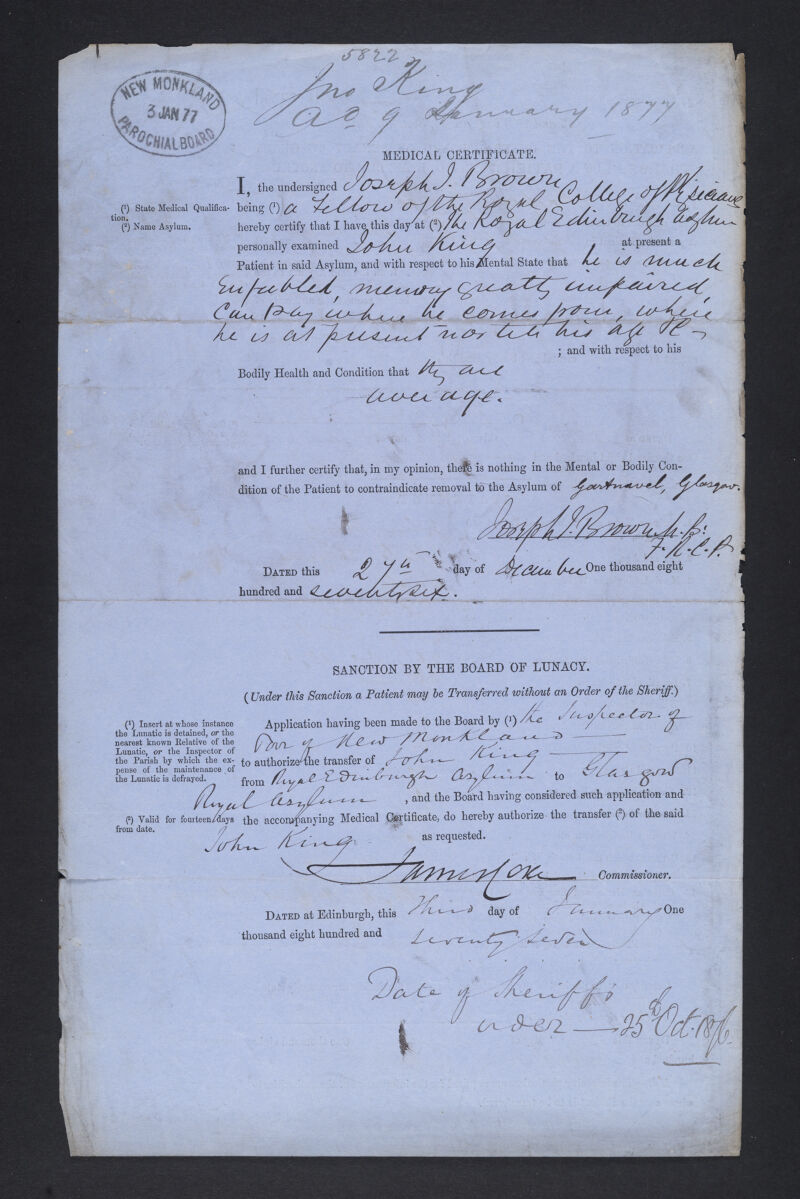 5822
Jno King
Ad 9 January 1877
NEW MONKLAND
3 JAN 77
PAROCHIAL BOARD
MEDICAL CERTIFICATE.
I, the undersigned Joseph J. Brown
(¹) State Medical Qualifica-
tion.
(²) Name Asylum.
being (¹) a Fellow of the Royal College of Physicians
hereby certify that I have this day at (²) the Royal Edinburgh Asylum
personally examined John King at present a
Patient in said Asylum, and with respect to his Mental State that he is much
Enfeebled, memory greatly impaired,
Can't say where he comes from, where
he is at present nor tell his age &c
; and with respect to his
Bodily Health and Condition that they are
average.
and I further certify that, in my opinion, there is nothing in the Mental or Bodily Con-
dition of the Patient to contraindicate removal to the Asylum of Gartnavel, Glasgow.
Joseph J. Brown M.B.
F.R.C.P.
DATED this 27th day of December One thousand eight
hundred and seventy six.
SANCTION BY THE BOARD OF LUNACY.
(Under this Sanction a Patient may be Transferred without an Order of the Sheriff.)
(¹) Insert at whose instance
the Lunatic is detained, or the
nearest known Relative of the
Lunatic, or the Inspector of
the Parish by which the ex-
pense of the maintenance of
the Lunatic is defrayed.
Application having been made to the Board by (¹) the Inspector of
Poor of New Monkland
to authorize the transfer of John King
from Royal Edinburgh Asylum to Glasgow
Royal Asylum , and the Board having considered such application and
(²) Valid for fourteen days
from date.
the accompanying Medical Certificate, do hereby authorize the transfer (²) of the said
John King as requested.
James Coxe Commissioner.
DATED at Edinburgh, this Third day of January One
thousand eight hundred and seventy seven
Date of Sheriff's
order — 25th Oct. 1876.